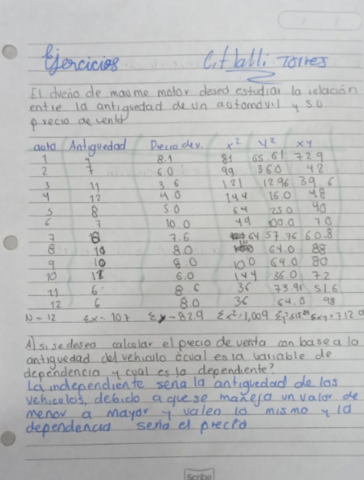 Ejercicios Citlalli Torres
El dueño de maume motor desea estudiar la relación
entre la antiguedad de un automóvil y su
precio de venta
auto Antiguedad Precio de v. x² y² xy
1 8.1 81 65.61 72.9
2 7 6.0 36.0 42
3 11 3.6 121 12.96 39.6
4 12 4.0 144 16.0 48
5 8 5.0 64 25.0 40
6 7 10.0 49 100.0 70
7 8 7.6 64 57.76 60.8
8 10 8.0 64.0 80
9 10 8.0 100 64.0 80
10 12 6.0 144 36.0 72
11 6 8.6 36 73.96 51.6
12 6 8.0 36 64.0
N=12 Σx=107 Σy=82.9 Σx²=1,009
A) si se desea calcular el precio de venta con base a la
antiguedad del vehiculo ¿cual es la variable de
dependencia y cual es la dependiente?
La independiente seria la antiguedad de los
vehiculos, debido a que se maneja un valor de
menor a mayor y valen lo mismo y la
dependencia seria el precio
Scribe